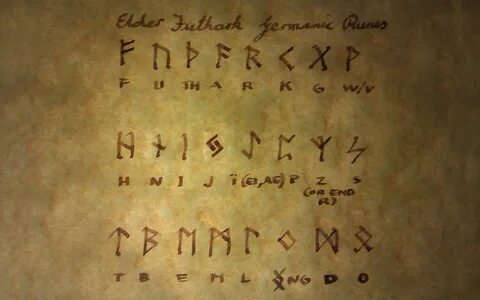 Elder Futhark Germanic Runes
ᚠ ᚢ ᚦ ᚨ ᚱ ᚲ ᚷ ᚹ
F U TH A R K G W/V
ᚺ ᚾ ᛁ ᛃ ᛇ ᛈ ᛉ ᛊ
H N I J Ï(EI,AE) P Z S
(OR END
R)
ᛏ ᛒ ᛖ ᛗ ᛚ ᛜ ᛞ ᛟ
T B E M L ᛝ NG D O